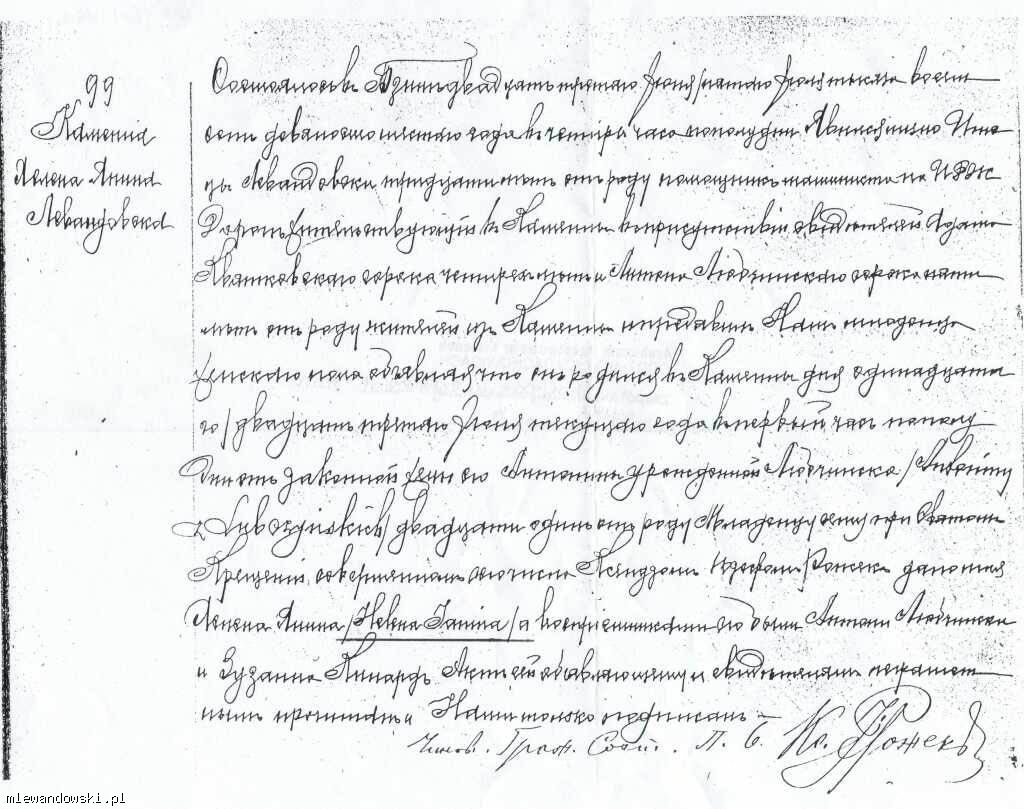 99
Каменна
Хелена Янина
Левандовска
Состоялось въ двадцать третяго Іюня /пятого Іюля тысяча восем
сотъ девяносто шестого года въ четыри часа пополудни. Явился лично Игна
цы Левандовски тридцати лѣтъ отъ роду помощникъ машиниста на ИДЖ
Дороги жительствующій въ Каменны въ присутствіи свидѣтелей Адама
Квятковскаго сорока четырехъ лѣтъ и Антона Любчинскаго сорока пяти
лѣтъ отъ роду жителей изъ Каменны и предъявилъ Намъ младенца
женскаго пола объявляя что онъ родился въ Каменны дня одинадцата
го / двадцать третяго Іюня текущаго года въ первый часъ пополу
дни отъ законной жены его Антонины урожденной Любчинска /Antoniny
z Lubczyńskich/ двадцати одинъ отъ роду Младенцу сему при Святомъ
Крещеніи, совершенномъ сего числа Ксендзомъ Іозефомъ Рожекъ дано имя
Хелена Янина /Helena Janina/ а воспріемниками его были Антони Любчински
и Зузанна Актъ сей объявляющему и свидѣтелямъ неграмот
нымъ прочитанъ и Нами только подписанъ
Чинов. Граж. Сост. П. Б. Кс. І Рожекъ
mlewandowski.pl